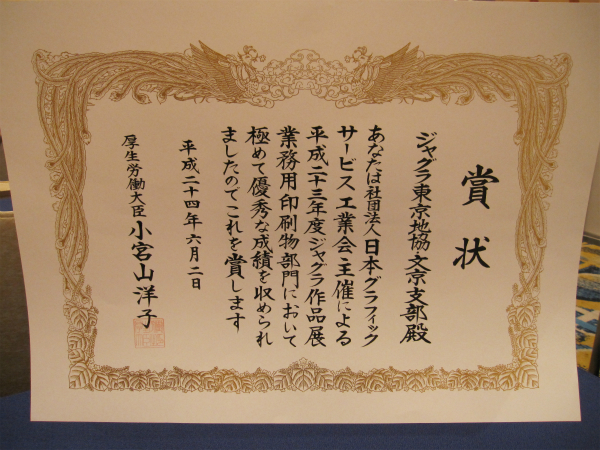 賞状
ジャグラ東京地協・文京支部殿
あなたは社団法人日本グラフィック
サービス工業会主催による
平成二十三年度ジャグラ作品展
業務用印刷物部門において
極めて優秀な成績を収められ
ましたのでこれを賞します
平成二十四年六月二日
厚生労働大臣 小宮山洋子